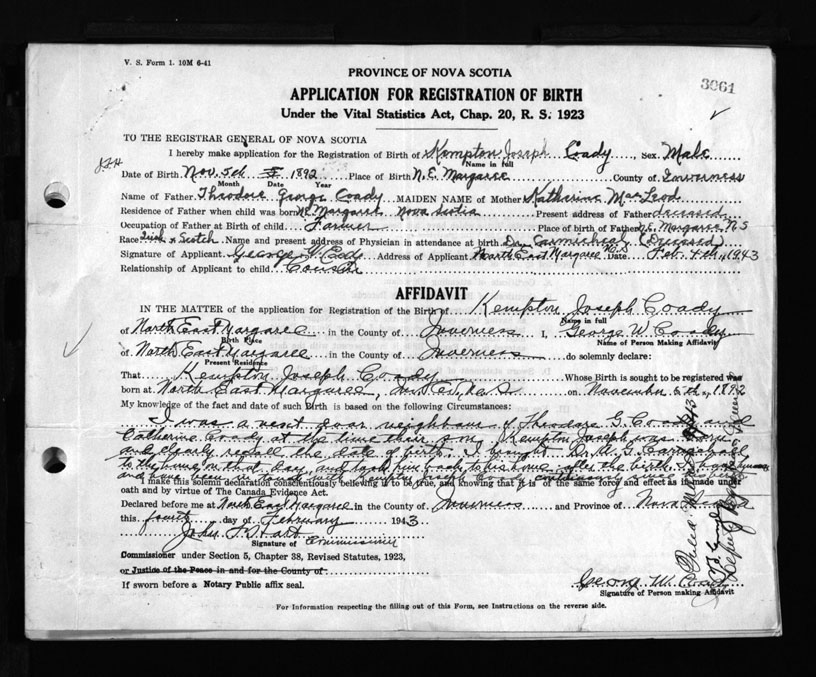 V. S. Form 1. 10M 6-41
3061
PROVINCE OF NOVA SCOTIA
APPLICATION FOR REGISTRATION OF BIRTH
Under the Vital Statistics Act, Chap. 20, R. S. 1923
TO THE REGISTRAR GENERAL OF NOVA SCOTIA
I hereby make application for the Registration of Birth of Kempton Joseph Coady, Sex Male
Name in full
Date of Birth Nov. 5th 1892 Place of Birth N.E. Margaree County of Inverness
Month Date Year
Name of Father Theodore George Coady MAIDEN NAME of Mother Katharine MacLeod
Residence of Father when child was born N.E. Margaree Nova Scotia Present address of Father deceased
Occupation of Father at Birth of child Farmer Place of birth of Father N.E. Margaree N.S
Race Irish & Scotch Name and present address of Physician in attendance at birth Dr. Carmichael (Deceased)
Signature of Applicant George W. Coady Address of Applicant North East Margaree N.S. Date Feb. 4th, 1943
Relationship of Applicant to child Cousin
AFFIDAVIT
IN THE MATTER of the application for Registration of the Birth of Kempton Joseph Coady
Name in full
of North East Margaree in the County of Inverness I, George W. Coady
Birth Place Name of Person Making Affidavit
of North East Margaree in the County of Inverness do solemnly declare:
Present Residence
That Kempton Joseph Coady Whose Birth is sought to be registered was
born at North East Margaree, on November 5th, 1892
My knowledge of the fact and date of such Birth is based on the following Circumstances:
I was a next door neighbour of Theodore G. Coady and
Catherine Coady at the time their son, Kempton Joseph was born
and clearly recall the date of birth. I brought Dr.
to the house on that day, and took him back to his home after the birth. I have
and Kempton Joseph Coady continuously since
I make this solemn declaration conscientiously believing it to be true, and knowing that it is of the same force and effect as if made under
oath and by virtue of The Canada Evidence Act.
Declared before me at North East Margaree in the County of Inverness and Province of Nova Scotia
this fourth day of February 1943
John T. Hart
Signature of Commissioner
Commissioner under Section 5, Chapter 38, Revised Statutes, 1923,
or Justice of the Peace in and for the County of
If sworn before a Notary Public affix seal.
George W. Coady
Signature of Person making Affidavit
For Information respecting the filling out of this Form, see Instructions on the reverse side.